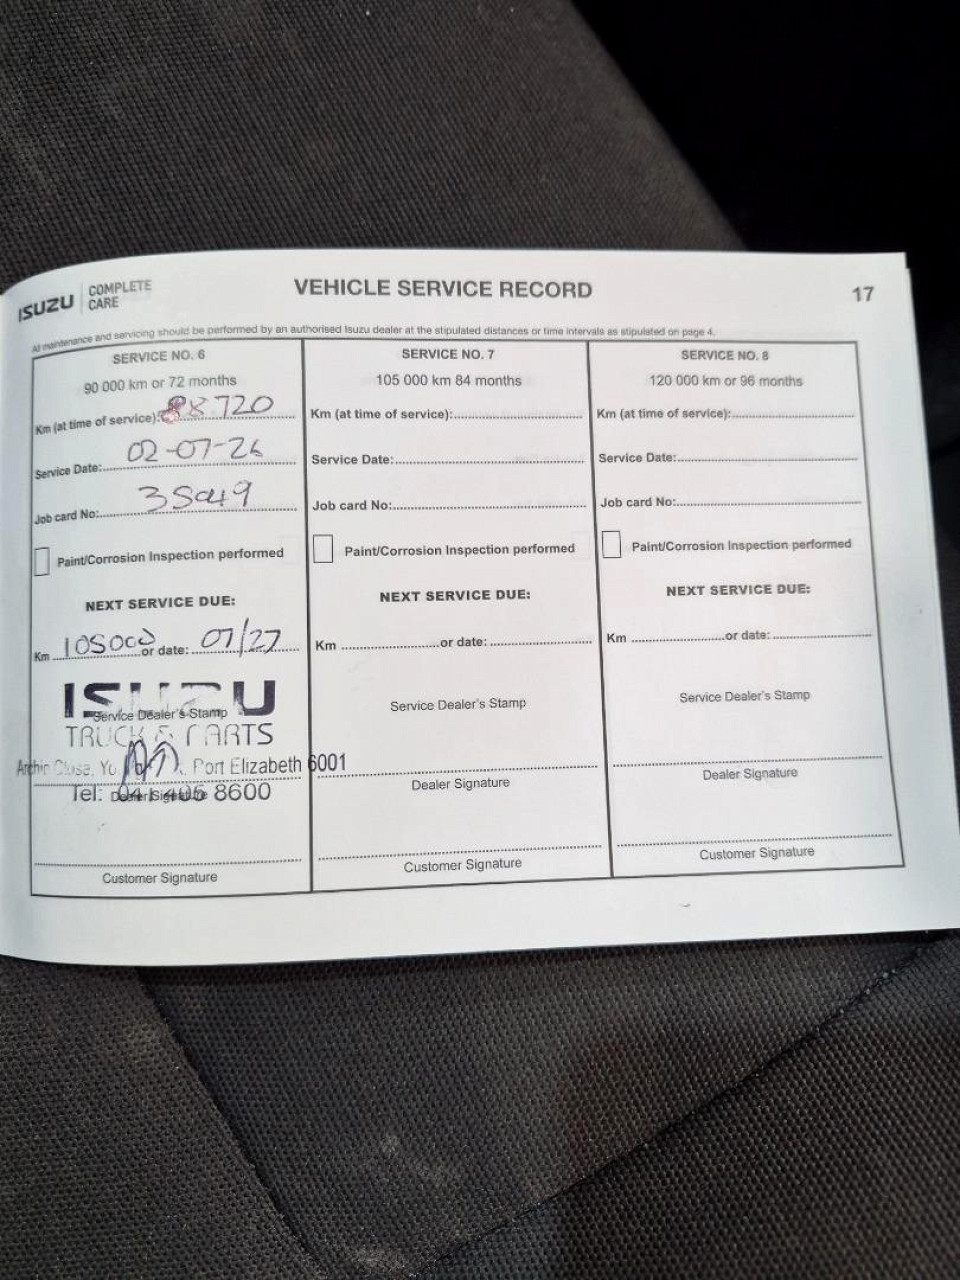 ISUZU COMPLETE CARE
VEHICLE SERVICE RECORD
17
All maintenance and servicing should be performed by an authorised Isuzu dealer at the stipulated distances or time intervals as stipulated on page 4.
SERVICE NO. 6
90 000 km or 72 months
Km (at time of service): 88720
Service Date: 02-07-26
Job card No:
Paint/Corrosion Inspection performed
NEXT SERVICE DUE:
Km 105000 or date: 07/27
ISUZU
Service Dealer's Stamp
TRUCK & PARTS
Close, Port Elizabeth 6001
Tel: 041 405 8600
Dealer Signature
Customer Signature
SERVICE NO. 7
105 000 km 84 months
Km (at time of service):
Service Date:
Job card No:
Paint/Corrosion Inspection performed
NEXT SERVICE DUE:
Km or date:
Service Dealer's Stamp
Dealer Signature
Customer Signature
SERVICE NO. 8
120 000 km or 96 months
Km (at time of service):
Service Date:
Job card No:
Paint/Corrosion Inspection performed
NEXT SERVICE DUE:
Km or date:
Service Dealer's Stamp
Dealer Signature
Customer Signature